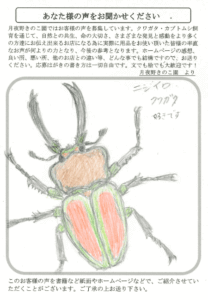 あなた様の声をお聞かせください 。
月夜野きのこ園ではお客様の声を募集しています。クワガタ・カブトムシ飼
育を通じて、自然との共生、命の大切さ、さまざまな発見と感動をより多く
の方達にお伝え出来るお店になる為に実際に商品をお使い頂いた皆様の率直
なお声が何よりの力となり、今後の参考となります。ホームページの感想、
良い所、悪い所、他のお店との違い等、どんな事でも結構ですので、お送り
ください。応募はがきの書き方は一切自由です。文でも絵でも大歓迎です!
月夜野きのこ園 より
ニジイロ
クワガタ
このお客様の声を書籍など紙面やホームページなどで、ご紹介させてい
ただくことがございます。ご了承の上お送り下さい。